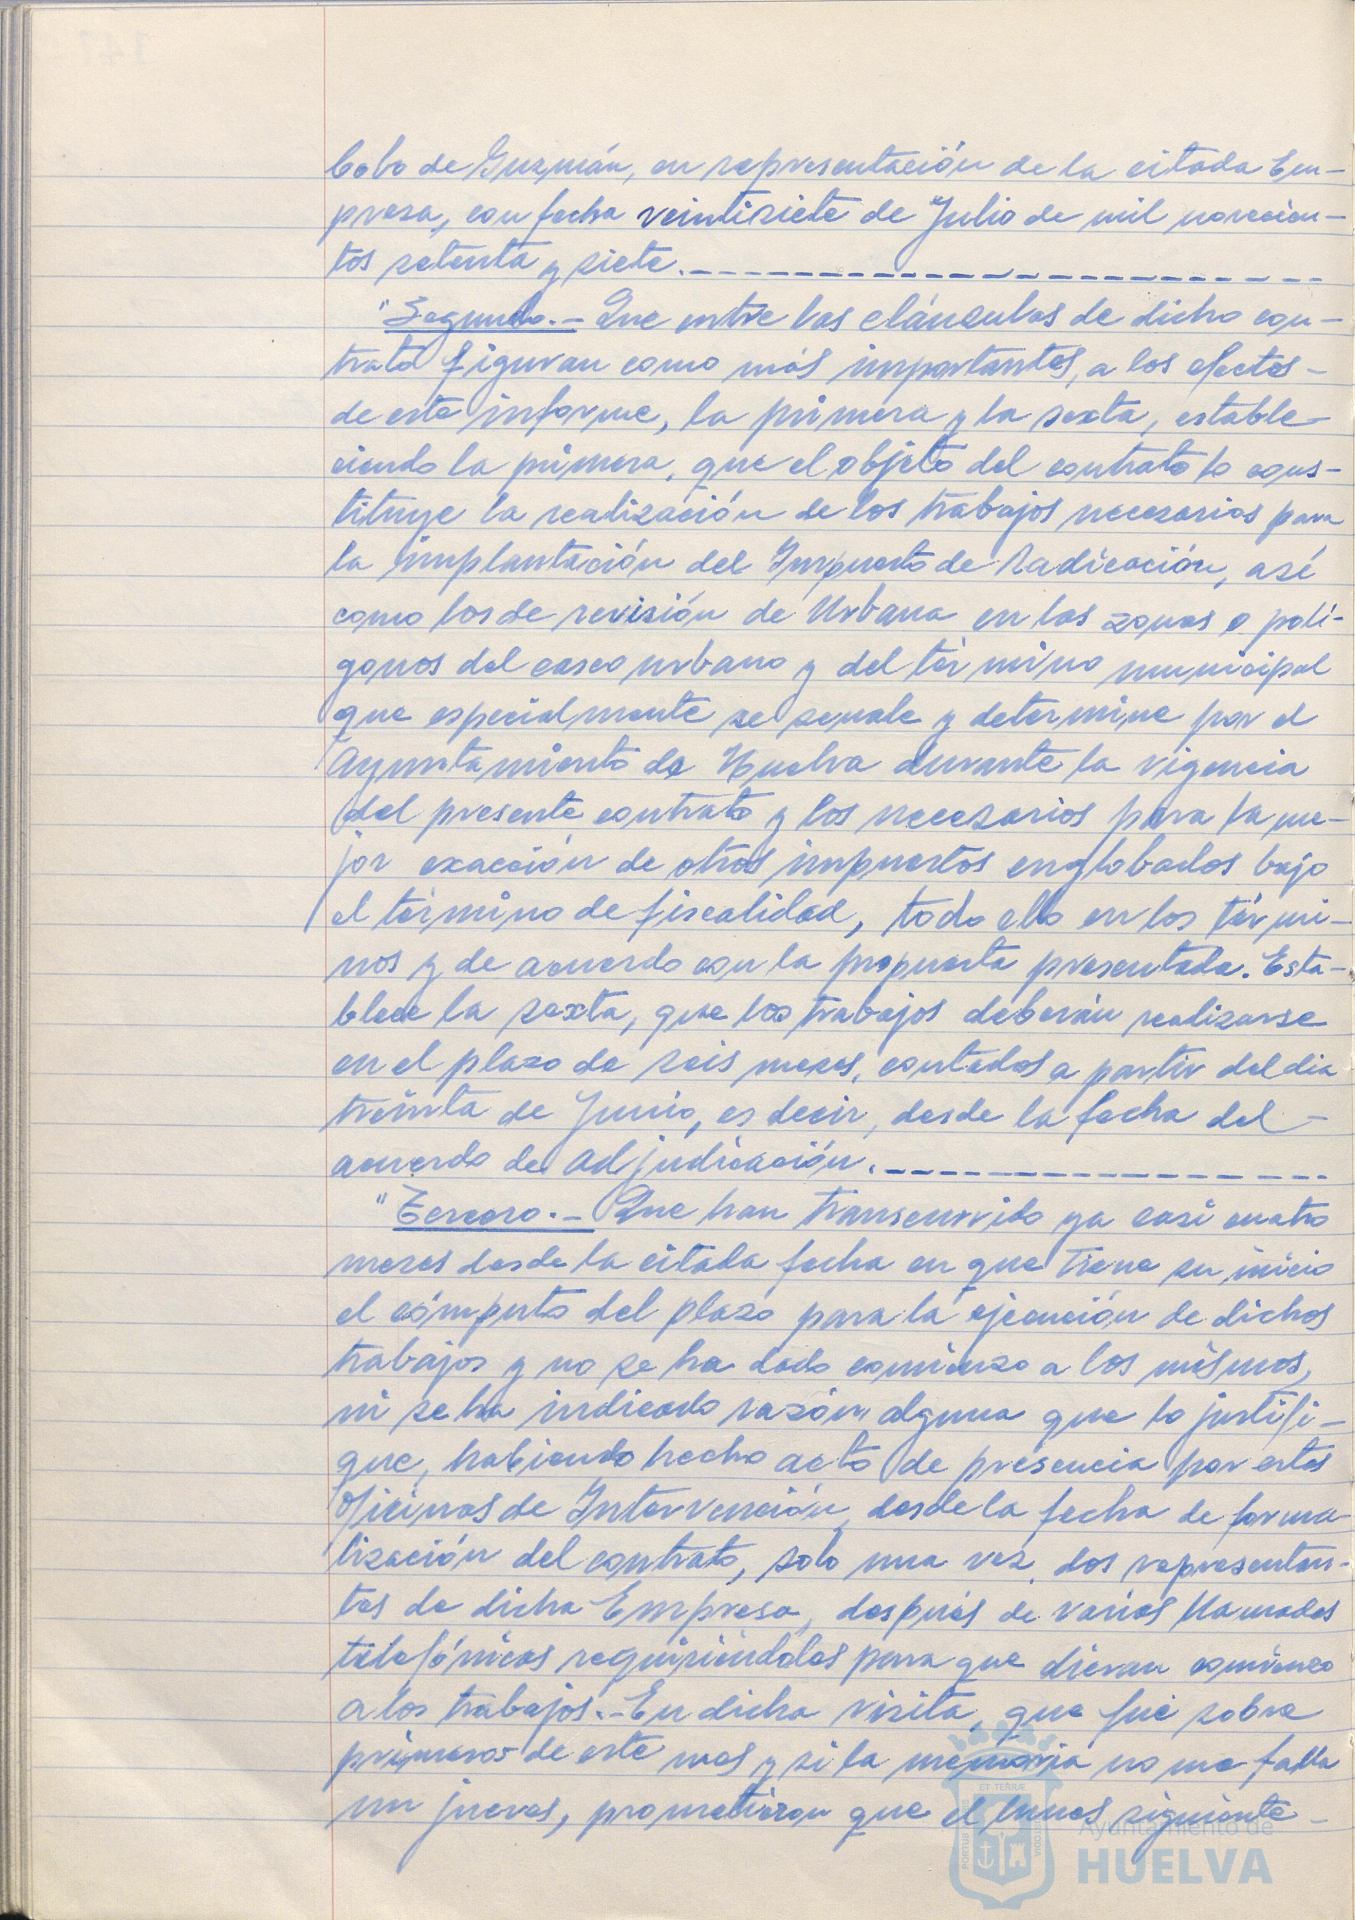 Cobo de Guzmán, en representación de la citada Em-
presa, con fecha veintisiete de Julio de mil novecien-
tos setenta y siete.
"Segundo.- Que entre las cláusulas de dicho con-
trato figuran como más importantes, a los efectos-
de este informe, la primera y la sexta, estable-
ciendo la primera, que el objeto del contrato lo cons-
tituye la realización de los trabajos necesarios para
la implantación del Impuesto de Radicación, así
como los de revisión de Urbana en las zonas o polí-
gonos del casco urbano y del término municipal
que especialmente se señale y determine por el
Ayuntamiento de Huelva durante la vigencia
del presente contrato y los necesarios para la me-
jor exacción de otros impuestos englobados bajo
el término de fiscalidad, todo ello en los térmi-
nos y de acuerdo con la propuesta presentada. Esta-
blece la sexta, que los trabajos deberán realizarse
en el plazo de seis meses, contados a partir del dia
treinta de Junio, es decir, desde la fecha del -
acuerdo de adjudicación.
"Tercero.- Que han transcurrido ya casi cuatro
meses desde la citada fecha en que tiene su inicio
el cómputo del plazo para la ejecución de dichos
trabajos y no se ha dado comienzo a los mismos,
ni se ha indicado razón alguna que lo justifi-
que, habiendo hecho acto de presencia por estas
Oficinas de Intervención, desde la fecha de forma-
lización del contrato, solo una vez, dos representan-
tes de dicha Empresa, después de varias llamadas
telefónicas requiriéndoles para que dieran comienzo
a los trabajos.- En dicha visita, que fué sobre
primeros de este mes y si la memoria no me falla
un jueves, prometieron que el lunes siguiente -
Ayuntamiento de
HUELVA